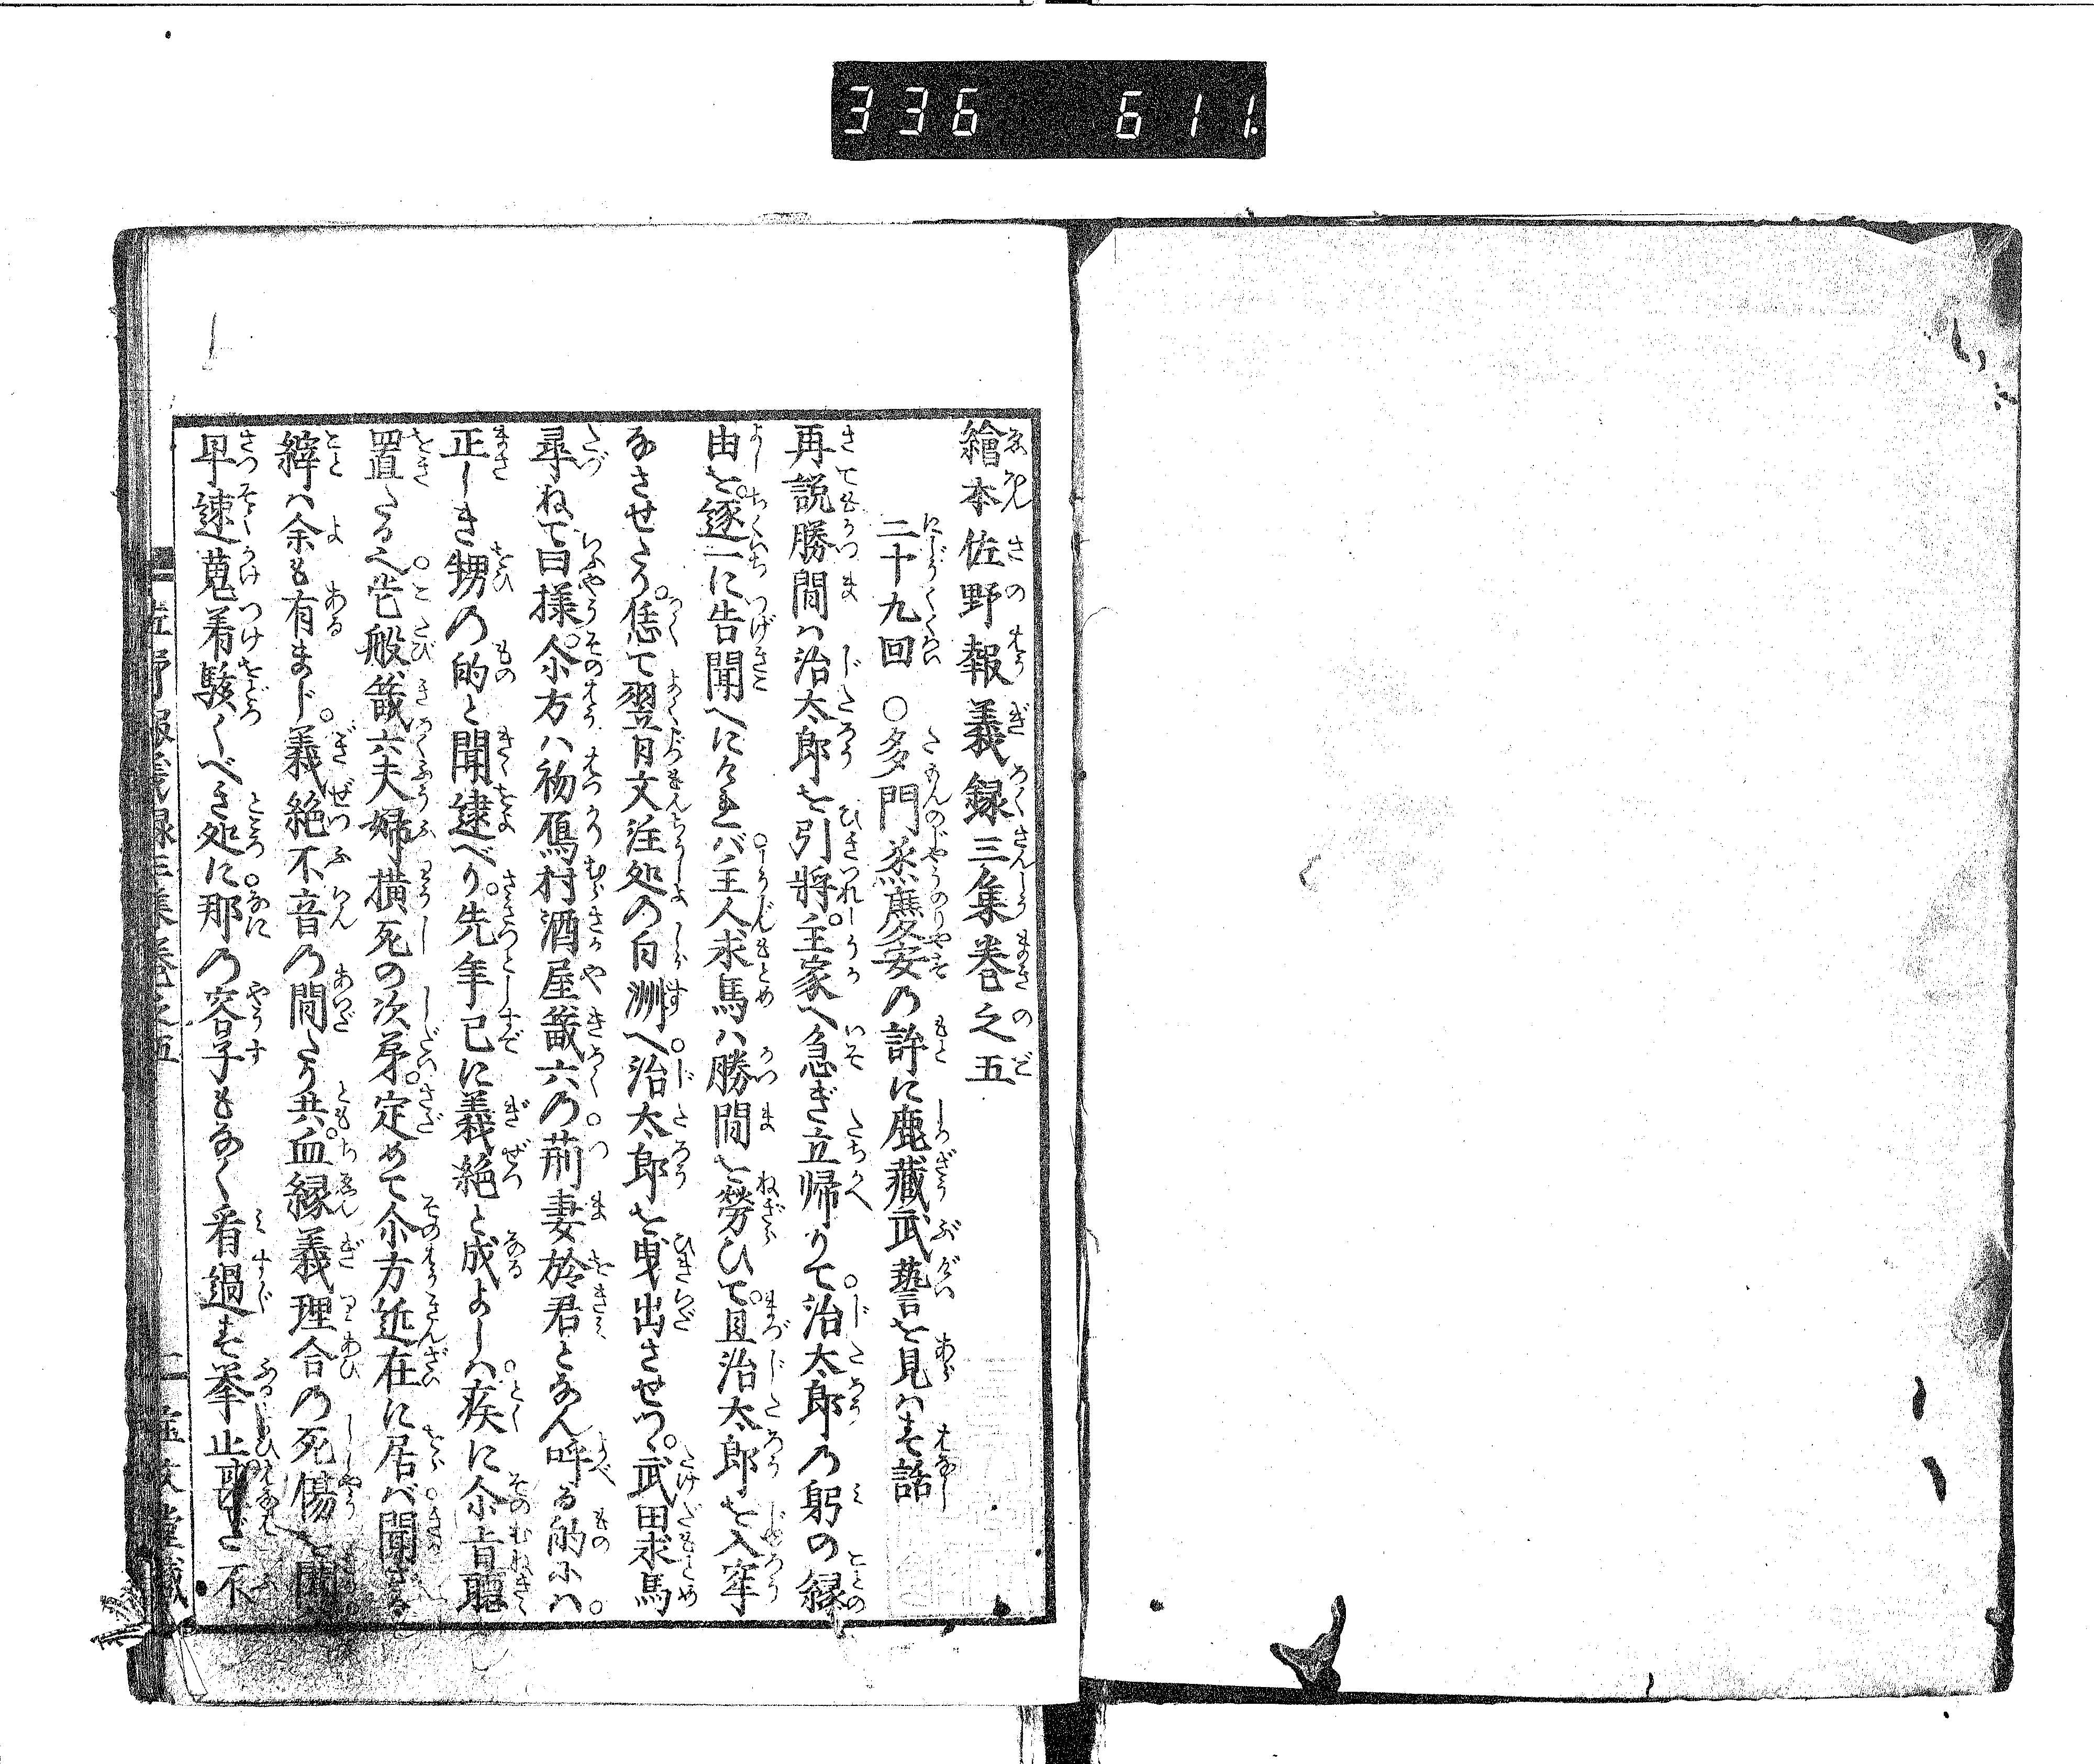 336 611
繪本佐野報義録三集巻之五
二十九回 ○多門烝慶安の許に鹿藏武藝を見はす話
再説勝間ハ治太郎を引將。主家へ急ぎ立帰りて。治太郎の躬の縁
由を。逐一に告聞へにけれバ。主人求馬ハ勝間を勞ひて。且治太郎を入牢
なさせたり。恁て翌日文注処の白洲へ。治太郎を曳出させつ。武田求馬
尋ねて曰様。尒方ハ初鴈村酒屋畿六の。荊妻於君となん呼る的にハ。
正しき甥の的と聞逮べり。先年已に義絶と成よしハ。疾に尒旨聽
置たる。這般畿六夫婦横死の次第。定めて尒方近在に居バ。聞ざる
縡ハ余も有まじ。義絶不音の間たり共。血縁義理合の死傷を聞
早速蒐着駭くべき処に。那の容子もなく。看過ず挙止 不
佐野報義録三集巻之五